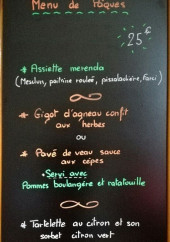 Menu de Pâques
25€
* Assiette merenda
(Mesclun, poitrine roulée, pissaladière, farci)
* Gigot d'agneau confit
aux herbes
ou
* Pavé de veau sauce
aux cèpes
• Servi avec
Pommes boulangère et ratatouille
* Tartelette au citron et son
sorbet citron vert